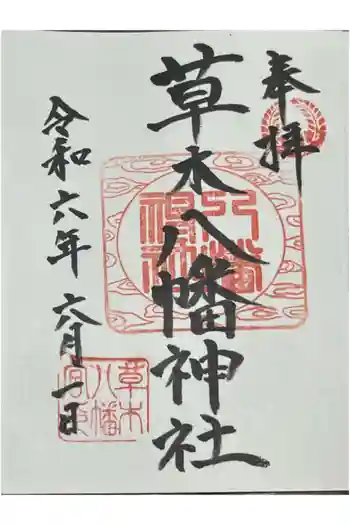 奉拝
草木八幡神社
令和六年六月一日
草木
八幡